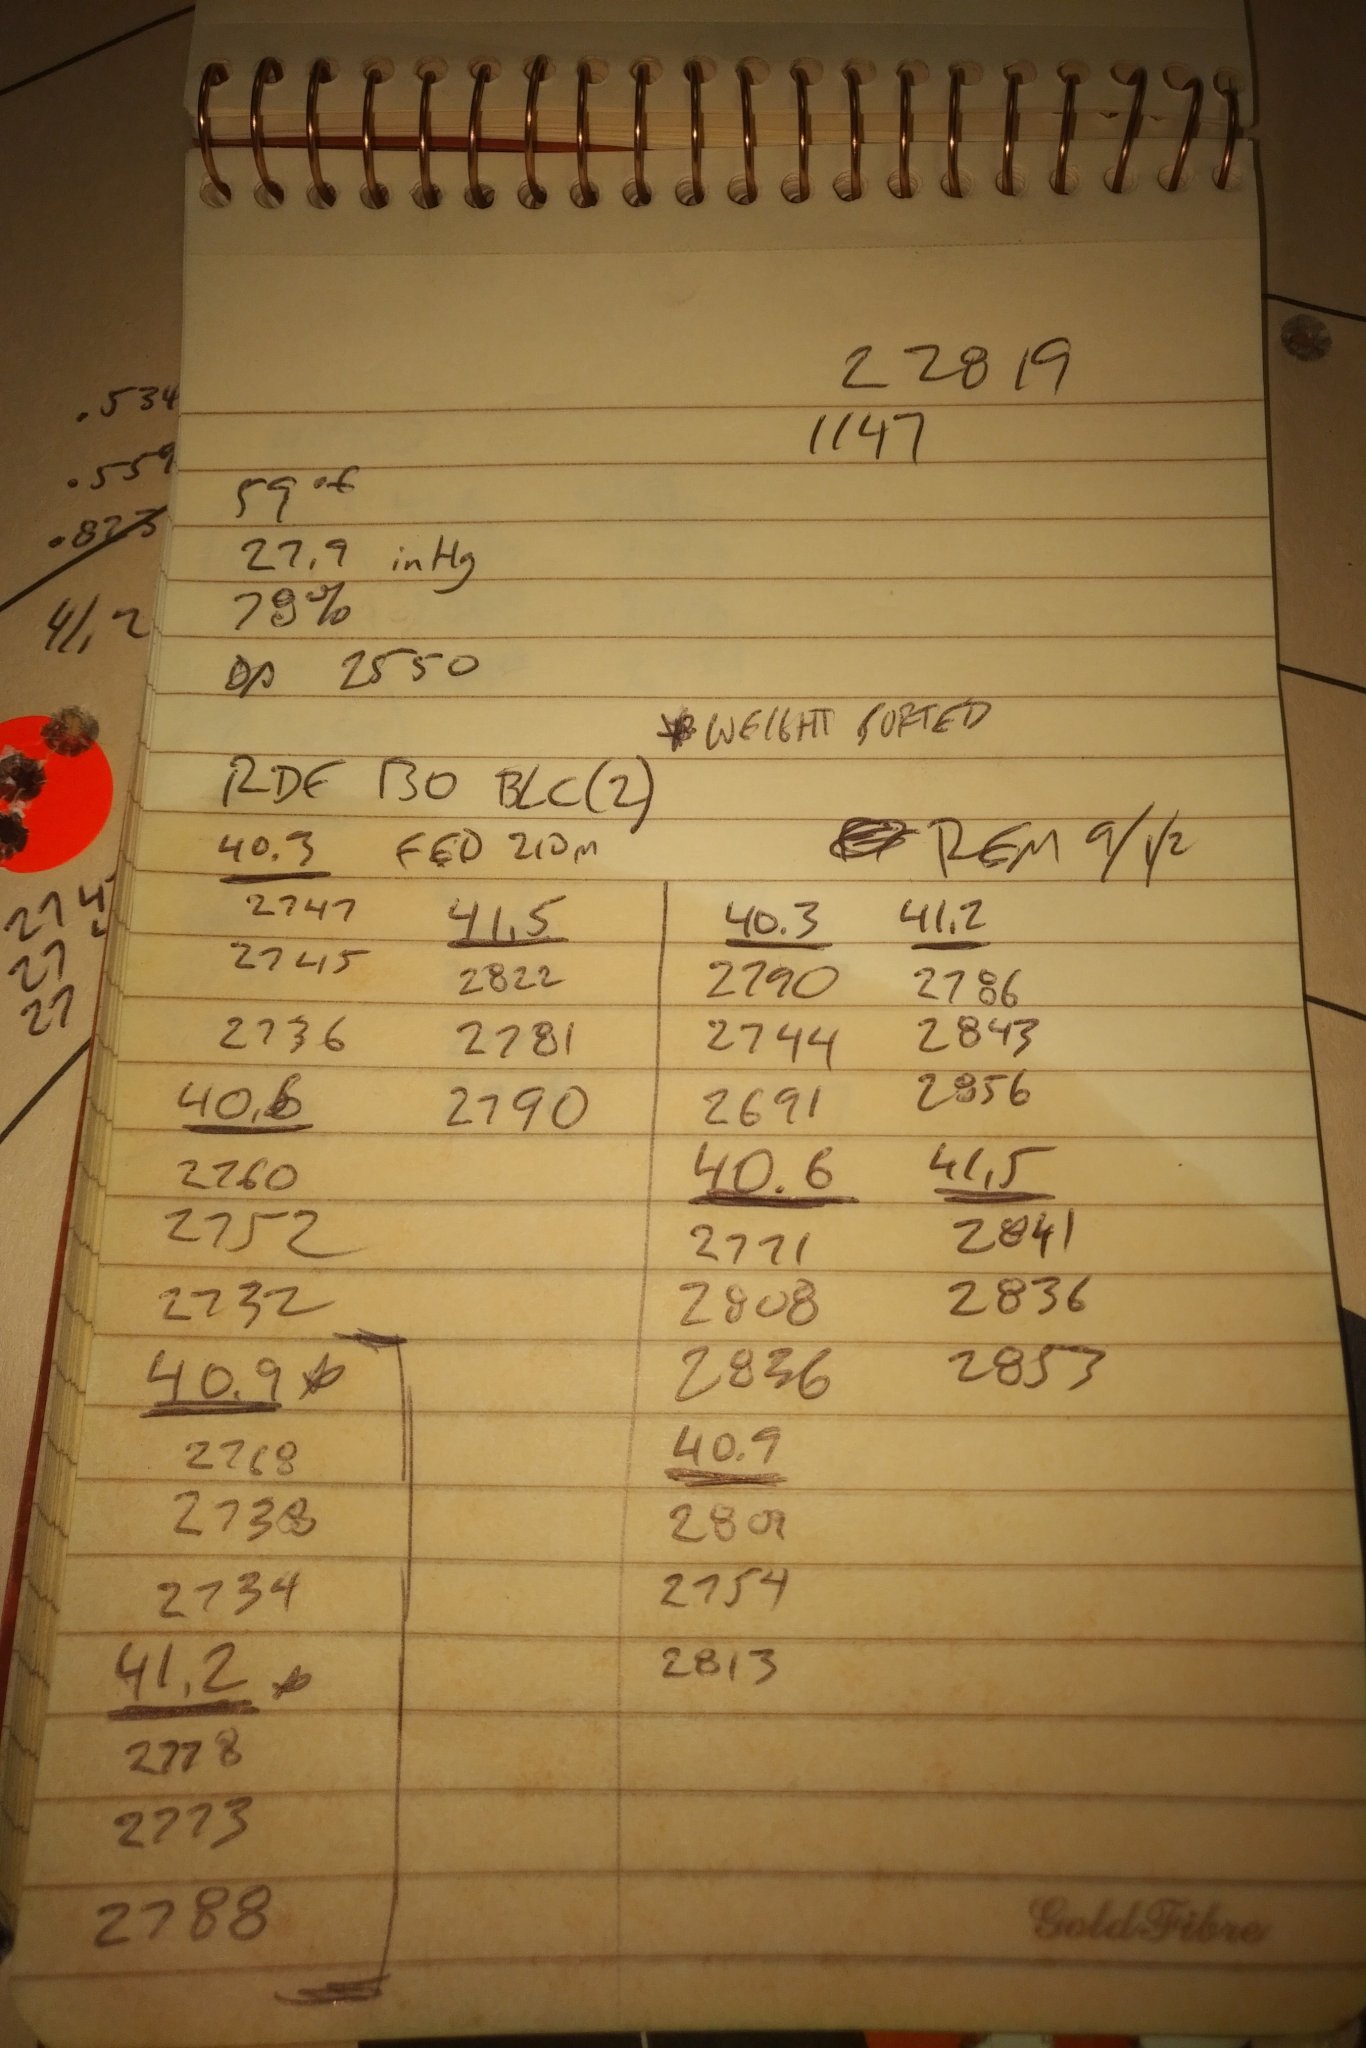 22819
1147
.534
.559
.823
41.2
59°F
27.9 inHg
79%
DA 2550
* WEIGHT SORTED
RDF 130 BLC(2)
40.3 FED 210m
2747
2745
2736
40.6
2760
2752
2732
40.9 *
2768
2738
2734
41.2 *
2778
2773
2788
41.5
2822
2781
2790
REM 9 1/2
40.3
2790
2744
2691
40.6
2771
2808
2836
40.9
2809
2754
2813
41.2
2786
2843
2856
41.5
2841
2836
2853
27
27
GoldFibre